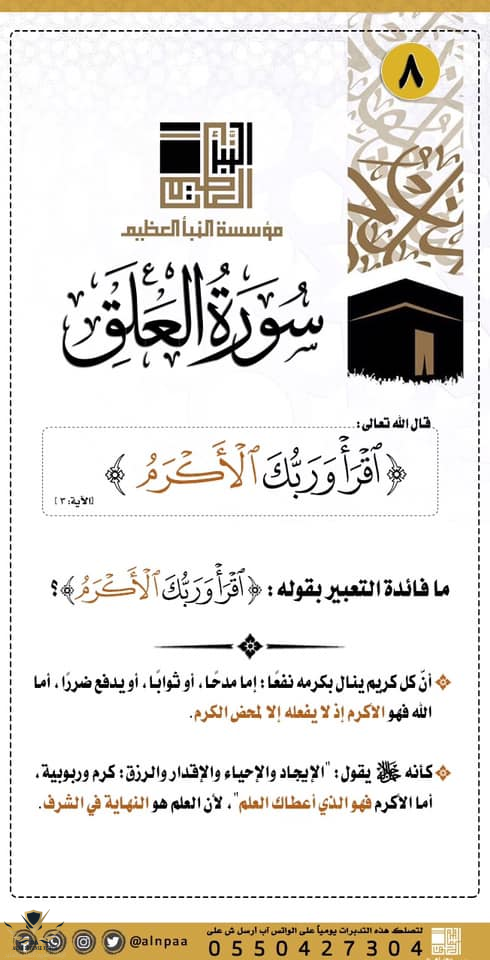 ٨
النبأ العظيم
مؤسسة النبأ العظيم
سُورَةُ العَلَقِ
قال الله تعالى :
﴿ ٱقْرَأْ وَرَبُّكَ ٱلْأَكْرَمُ ﴾
[الآية: ٣]
ما فائدة التعبير بقوله : ﴿ ٱقْرَأْ وَرَبُّكَ ٱلْأَكْرَمُ ﴾ ؟
أنّ كل كريم ينال بكرمه نفعًا : إما مدحًا ، أو ثوابًا ، أو يدفع ضررًا ، أما
الله فهو الأكرم إذ لا يفعله إلا لمحض الكرم.
كأنه ﷻ يقول : "الإيجاد والإحياء والإقدار والرزق : كرم وربوبية ،
أما الأكرم فهو الذي أعطاك العلم" ، لأن العلم هو النهاية في الشرف.
لتصلك هذه التدبرات يومياً على الواتس آب ارسل ش على
@alnpaa
0550427304